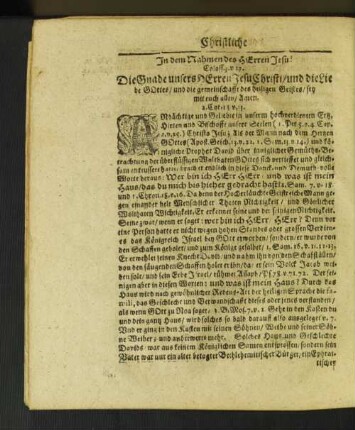 Christliche
In dem Nahmen des HErren Jesu!
Coloss. 3. v. 17.
Die Gnade unsers HErren Jesu Christi/ und die Lie
be GOttes/ und die gemeinschafft des heiligen Geistes/ sey
mit euch allen/ Amen.
2. Cor. 13 v. 13.
ANdächtige und Geliebte in unserm hochverdienten Ertz,
Hirten und Bischoffe unsrer Seelen
Christo Jesu; Als der Mann nach dem Hertzen
GOttes/ und
Königliche Prophet David über
trachtung der überflüssigen Wolthaten GOttes sich vertieffet und gleich-
sam
Worte heraus: Wer bin ich HErr HErr und was ist mein
Haus/ das du mich bis hieher gebracht hast 2. Sam. 7. v. 18
und 1. Chron. 18. v. 16. Da denn der Hocherläuchtete Geistreiche Mann ge-
gen einander hielt Menschlicher Thaten Nichtigkeit/ und Göttlicher
Wolthaten Wichtigkeit. Er erkennet seine und der seinigen Nichtigkeit.
Seine zwar/ wenn er saget: wer bin ich HErr HErr? Denn vor
eine Person hatte er nicht wegen hohen Standes oder grossen Verdien-
stes das Königreich Israel bey GOtt erworben/ sondern er wurde von
den Schaffen geholet/ und zum Könige gesalbet/ 1. Sam. 16. v. 11. 13.
Er erwehlet seinen Knecht David/ und nahm ihn von den Schaffställen/
von den säugenden Schaffen holet er ihn/ daß er sein Volck Jacob wei-
den solte/ und sein Erbe Israel/ rühmt Assaph/ Ps. 78. v. 71. 72. Der sei-
nigen aber in diesen Worten: und was ist mein Haus? Durch das
Haus wird nach gewöhnlicher Redens-Art der heiligen Sprache die fa-
mili, das Geschlecht und Verwandschafft dieses oder jenes verstanden/
als wenn GOtt zu Noa saget: 1. B. Mos. 7. v. 1. Gehe in den Kasten du
und dein gantz Haus/ wird solches so bald darauff also ausgeleget v. 7.
Und er gieng in den Kasten mit seinen Söhnen/ Weibe und seiner Söh-
ne Weiber/ und anderswo mehr. Solches Haus und Geschlechte
Davids war aus keinem Königlichen Samen entsprossen/ sondern sein
Vater war nur ein alter betagter Bethlehemitischer Bürger, ein Ephra-
tischer